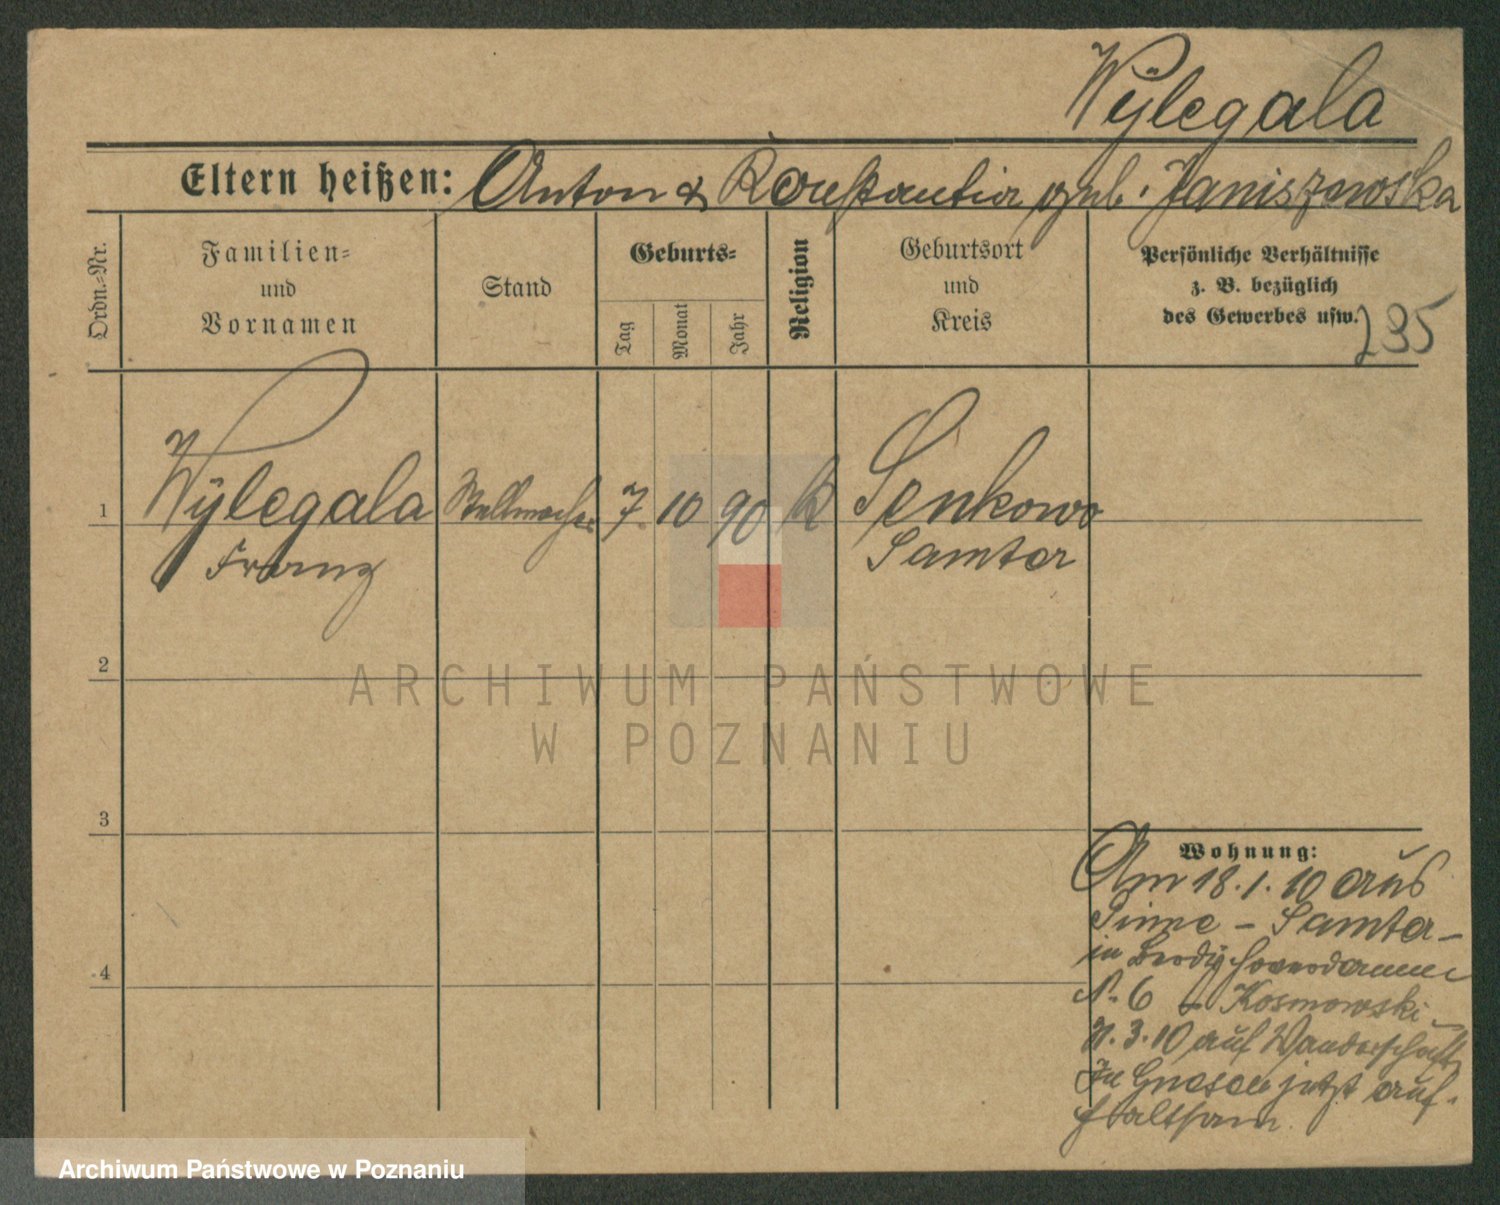 Wÿlegala
Eltern heißen: Anton & Konstantia geb. Janiszewska
Ordn.-Nr.
Familien-
und
Vornamen
Stand
Geburts-
Tag
Monat
Jahr
Religion
Geburtsort
und
Kreis
Persönliche Verhältnisse
z. B. bezüglich
des Gewerbes usw.
295
1
Wÿlegala
Franz
Stellmacher
7. 10 90
K
Senkowo
Samter
2
ARCHIWUM PAŃSTWOWE
W POZNANIU
3
4
Wohnung:
Am 18.1.10 aus
Pinne – Samter –
in Brody
N. 6 – Kosmowski –
3.10 auf Wanderschaft
In Gnesen jetzt auf-
haltsam.
Archiwum Państwowe w Poznaniu